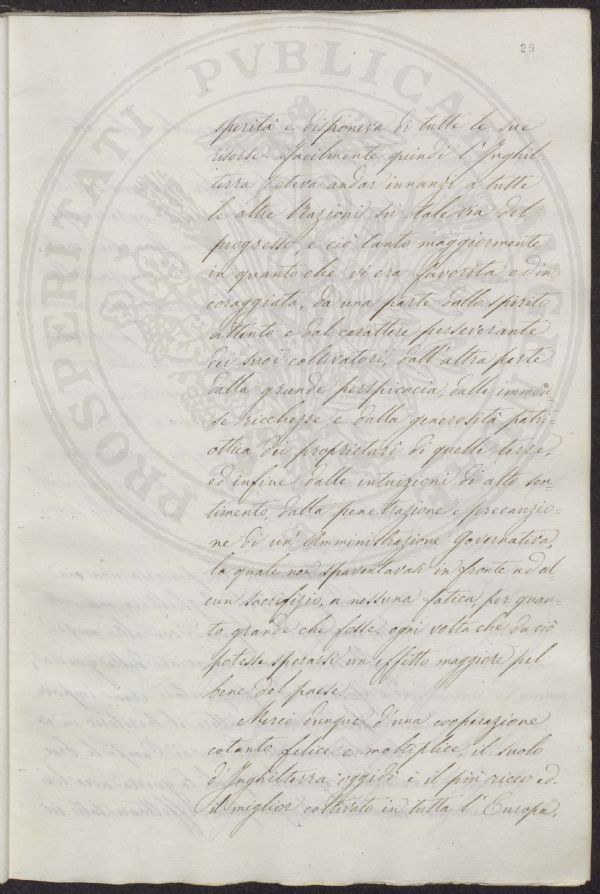 29
sperità e disponeva di tutte le sue
risorse. Facilmente quindi l'Inghil=
terra poteva andar innanzi a tutte
le altre Nazioni su tale via del
progresso, e ciò tanto maggiormente
in quanto che vi era favorita ed in
coraggiata, da una parte dallo spirito
attento e dal carattere perseverante
dei suoi coltivatori, dall'altra parte
dalla grande perspicacia, dalle immen=
se ricchezze e dalla generosità patri=
ottica dei proprietarî di quelle terre,
ed infine dalle intuizioni di alto sen=
timento, dalla penetrazione e precauzio=
ne di un' Amministrazione Governativa,
la quale non spaventavasi in fronte ad al=
cun sacrifizio, a nessuna fatica, per quan=
to grande che fosse, ogni volta che da ciò
potesse sperarsi un effetto maggiore pel
bene del paese.
Mercè dunque d'una cooperazione
cotanto felice e moltiplice, il suolo
d'Inghilterra oggidì è il più ricco ed
il miglior coltivato in tutta l'Europa.
PROSPERITATI PVBLICAE